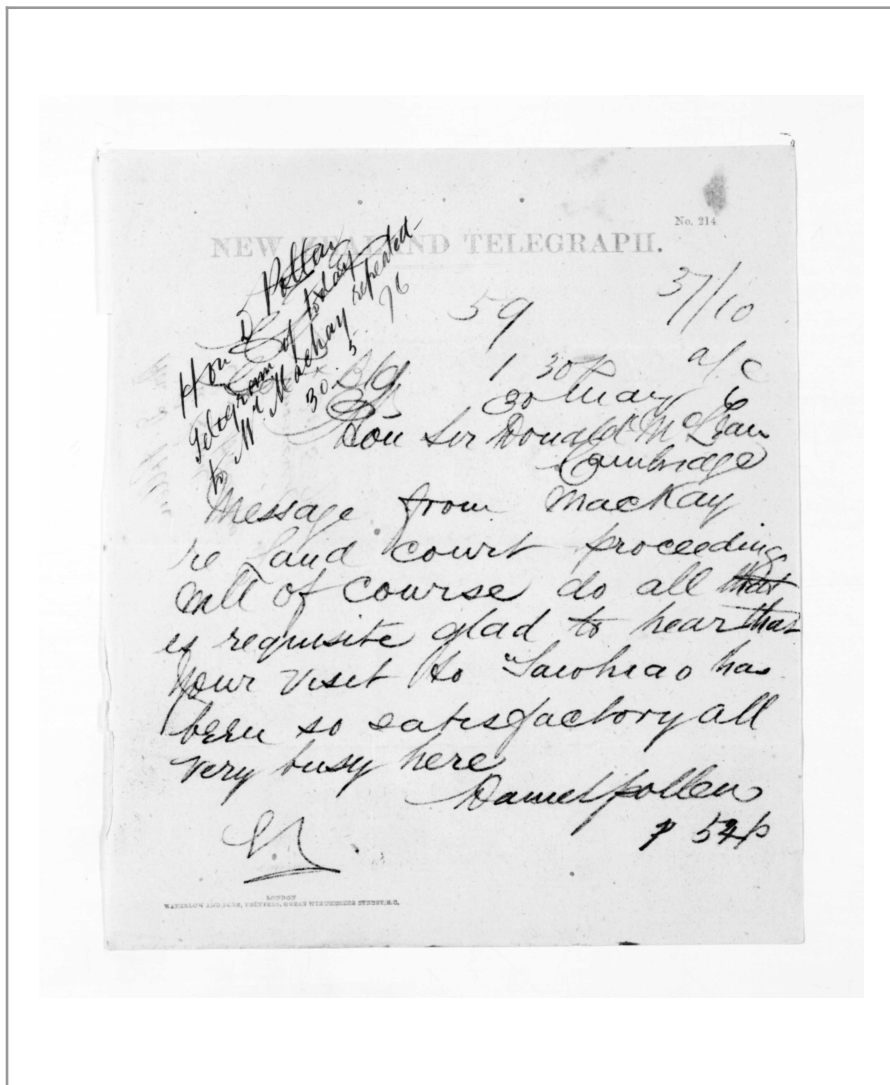 No. 214
NEW ZEALAND TELEGRAPH.
Hon D Pollen
Telegram of today
to Mr Mackay repeated
30. 5. 76
59
37/10
a/c
Bld 1 30 p
30 May 6
Hon Sir Donald McLean
Cambridge
Message from MacKay
re Land court proceedings
will of course do all that
is requisite glad to hear that
your visit to Tawhiao has
been so satisfactory all
very busy here
Daniel pollen
LONDON
WATERLOW AND SONS, PRINTERS, GREAT WINCHESTER STREET, E.C.